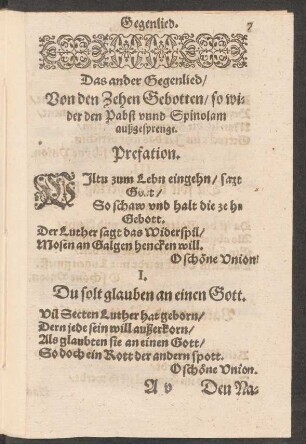 Gegenlied. 7
Das ander Gegenlied/
Von den Zehen Gebotten/ so wi-
der den Pabst vund Spinolam
außgesprenge.
Prefation.
WIltu zum Lebn eingehn/ sagt
Gott/
So schaw vnd halt die zehn
Gebott.
Der Luther sagt das Widerspil/
Mosen an Galgen hencken will.
O schöne Vnion/
I.
Du solt glauben an einen Gott.
Vil Secten Luther hat geborn/
Dern jede sein will außerkorn/
Als glaubten sie an einen Gott/
So doch ein Rott der andern spott.
O schöne Vnion.
A v Den Na-